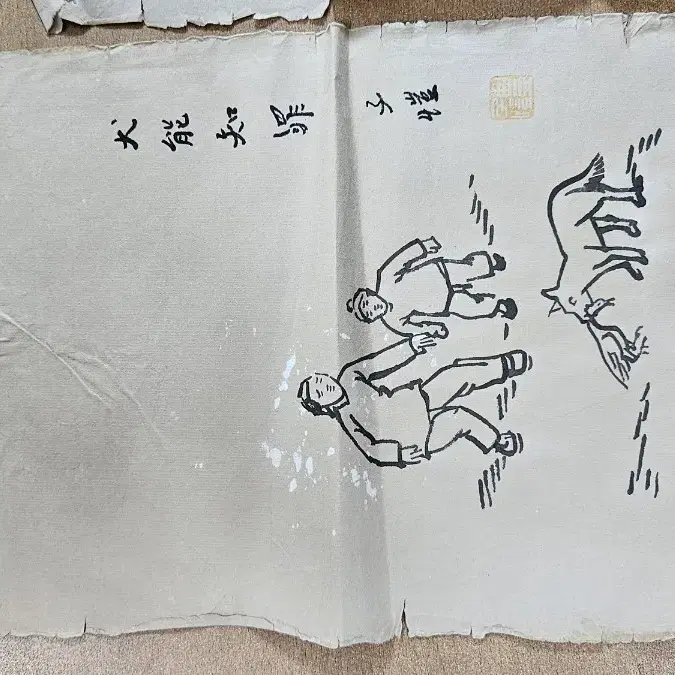 犬能知罪
子愷